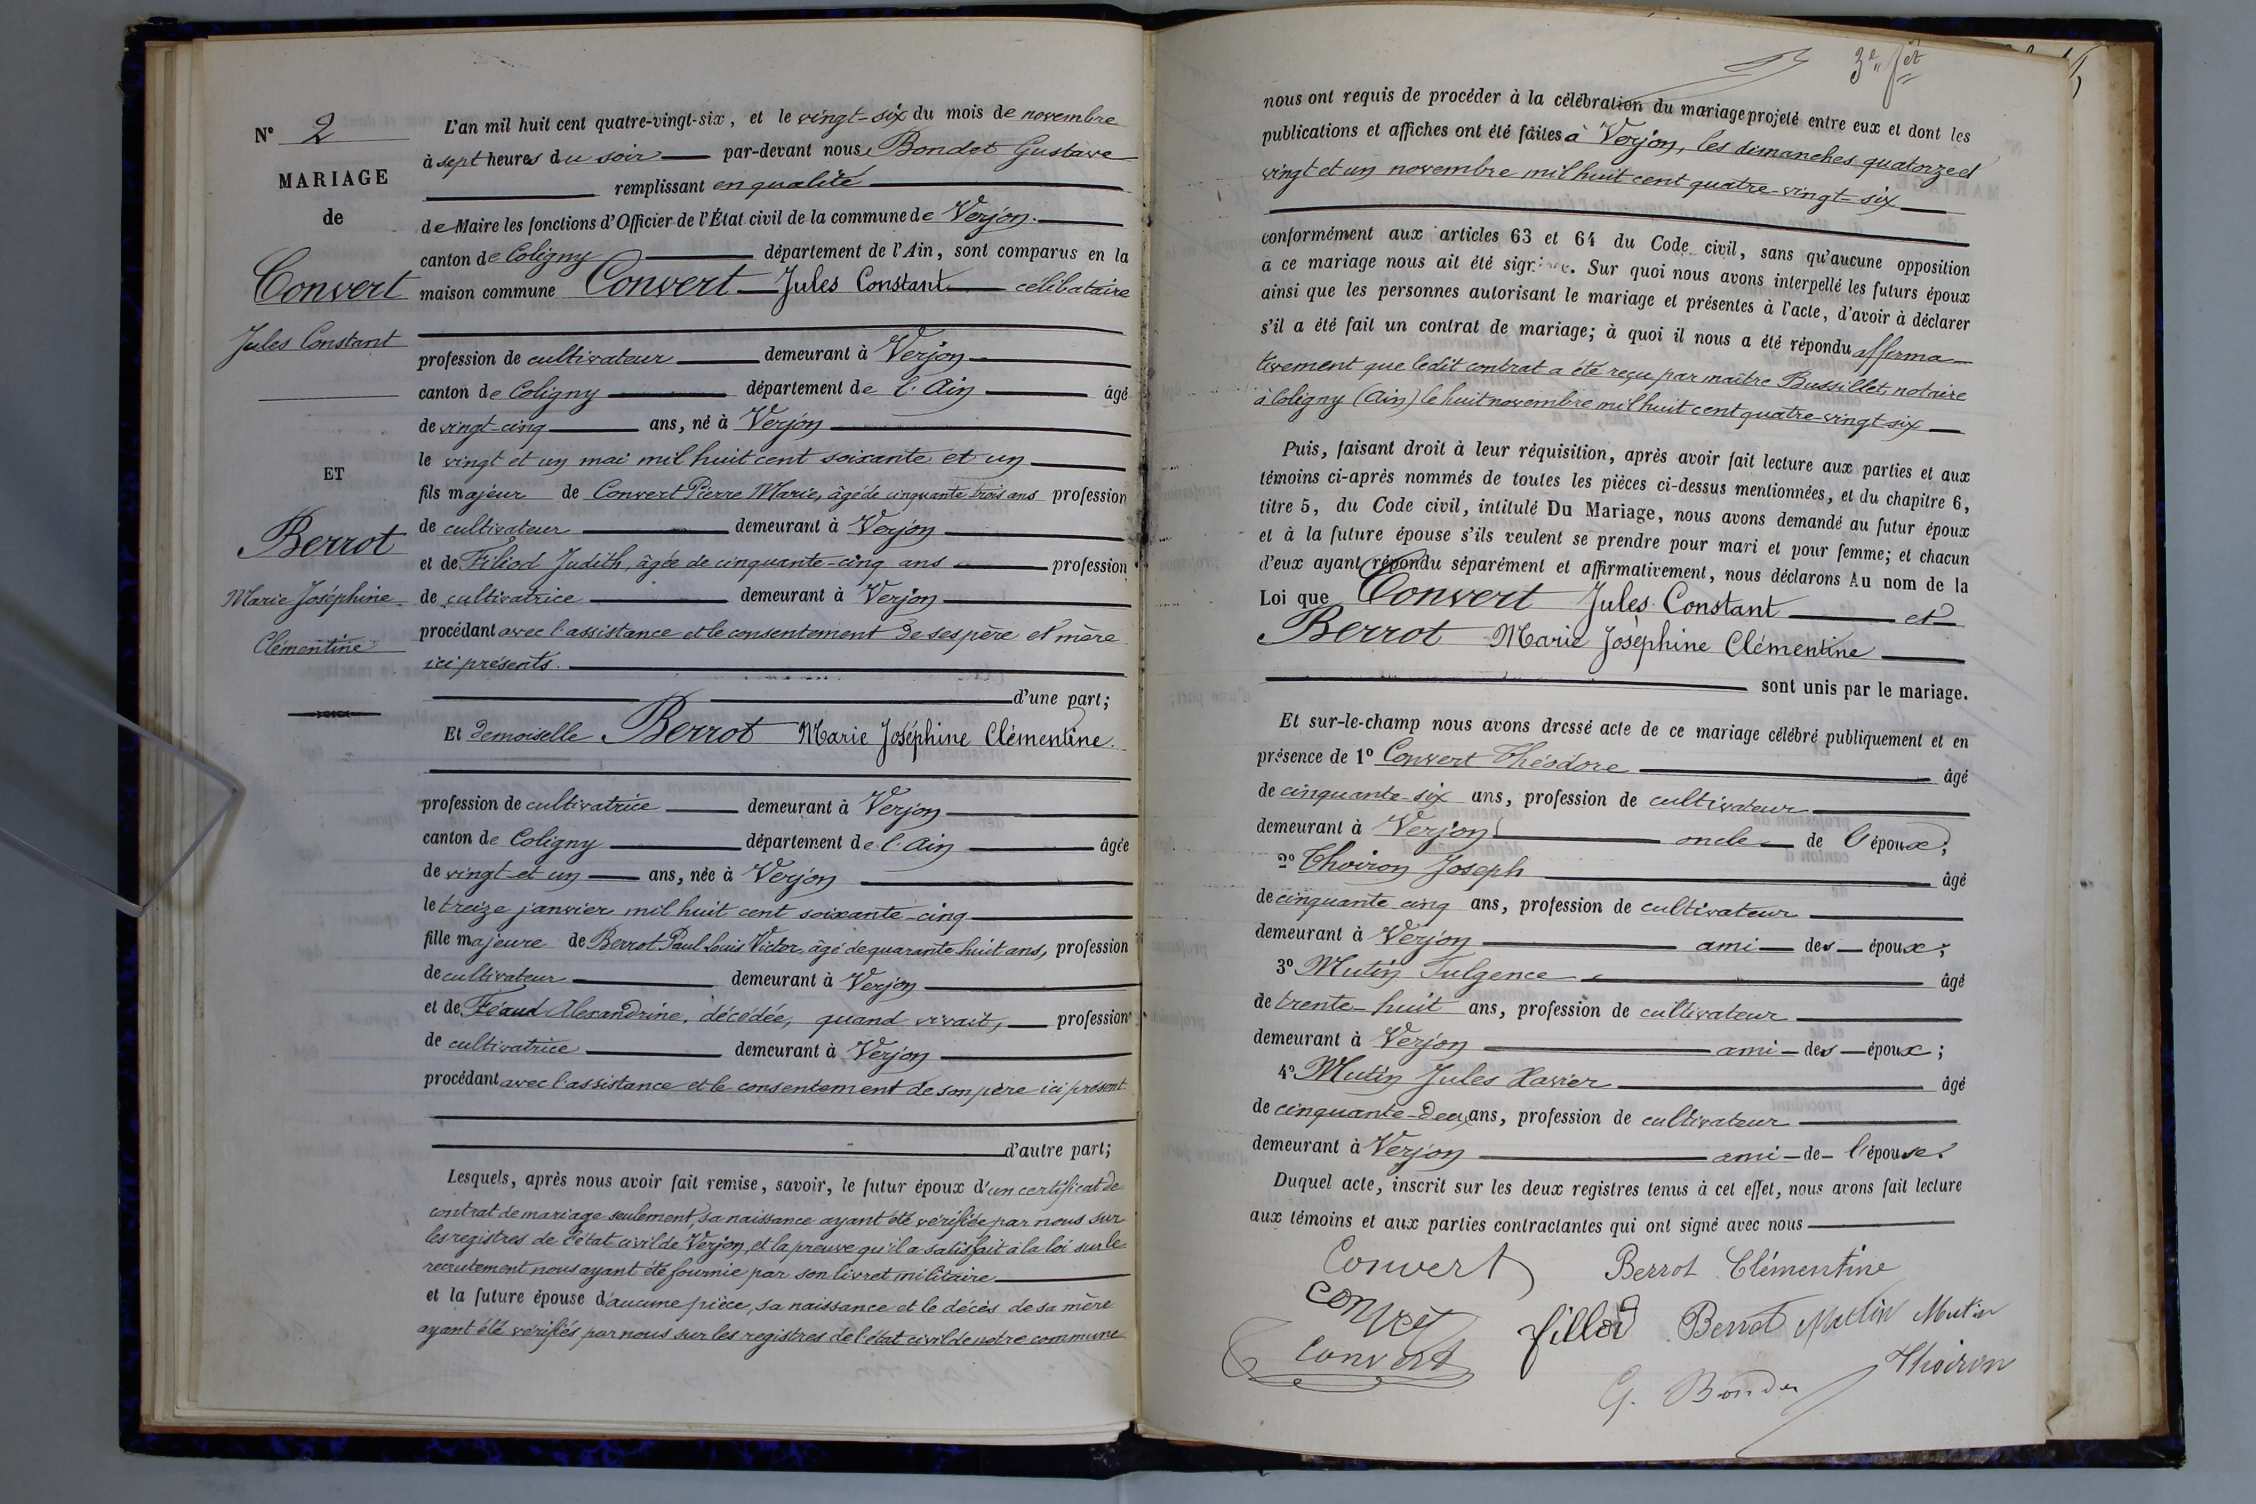 N° 2
MARIAGE
de
Convert
Jules Constant
ET
Berrot
Marie Joséphine
Clémentine
L'an mil huit cent quatre-vingt-six, et le vingt-six du mois de novembre
à sept heures du soir par-devant nous Bondet Gustave
remplissant en qualité
de Maire les fonctions d'Officier de l'État civil de la commune de Verjon
canton de Coligny département de l'Ain, sont comparus en la
maison commune Convert Jules Constant célibataire
profession de cultivateur demeurant à Verjon
canton de Coligny département de l'Ain âgé
de vingt-cinq ans, né à Verjon
le vingt et un mai mil huit cent soixante et un
fils majeur de Convert Pierre Marie, âgé de cinquante trois ans profession
de cultivateur demeurant à Verjon
et de Filiod Judith, âgée de cinquante-cinq ans profession
de cultivatrice demeurant à Verjon
procédant avec l'assistance et le consentement de ses père et mère
ici présents.
d'une part;
Et demoiselle Berrot Marie Joséphine Clémentine.
profession de cultivatrice demeurant à Verjon
canton de Coligny département de l'Ain âgée
de vingt et un ans, née à Verjon
le treize janvier mil huit cent soixante-cinq
fille majeure de Berrot Paul Louis Victor, âgé de quarante huit ans, profession
de cultivateur demeurant à Verjon
et de Féaud Alexandrine, décédée, quand vivait, profession
de cultivatrice demeurant à Verjon
procédant avec l'assistance et le consentement de son père ici présent
d'autre part;
Lesquels, après nous avoir fait remise, savoir, le futur époux d'un certificat de
contrat de mariage seulement, sa naissance ayant été vérifiée par nous sur
les registres de l'état civil de Verjon, et la preuve qu'il a satisfait à la loi sur le
recrutement nous ayant été fournie par son livret militaire
et la future épouse d'aucune pièce, sa naissance et le décès de sa mère
ayant été vérifiés par nous sur les registres de l'état civil de notre commune
3e
nous ont requis de procéder à la célébration du mariage projeté entre eux et dont les
publications et affiches ont été faites à Verjon, les dimanches quatorze et
vingt et un novembre mil huit cent quatre-vingt-six
conformément aux articles 63 et 64 du Code civil, sans qu'aucune opposition
à ce mariage nous ait été signifiée. Sur quoi nous avons interpellé les futurs époux
ainsi que les personnes autorisant le mariage et présentes à l'acte, d'avoir à déclarer
s'il a été fait un contrat de mariage; à quoi il nous a été répondu afferma-
tivement que ledit contrat a été reçu par maître Bussillet, notaire
à Coligny (Ain) le huit novembre mil huit cent quatre-vingt six
Puis, faisant droit à leur réquisition, après avoir fait lecture aux parties et aux
témoins ci-après nommés de toutes les pièces ci-dessus mentionnées, et du chapitre 6,
titre 5, du Code civil, intitulé Du Mariage, nous avons demandé au futur époux
et à la future épouse s'ils veulent se prendre pour mari et pour femme; et chacun
d'eux ayant répondu séparément et affirmativement, nous déclarons Au nom de la
Loi que Convert Jules Constant et
Berrot Marie Joséphine Clémentine
sont unis par le mariage.
Et sur-le-champ nous avons dressé acte de ce mariage célébré publiquement et en
présence de 1° Convert Théodore âgé
de cinquante-six ans, profession de cultivateur
demeurant à Verjon oncle de l'époux;
2° Thoiron Joseph âgé
de cinquante cinq ans, profession de cultivateur
demeurant à Verjon ami des époux;
3° Mutin Fulgence âgé
de trente-huit ans, profession de cultivateur
demeurant à Verjon ami des époux;
4° Mutin Jules Xavier âgé
de cinquante-deux ans, profession de cultivateur
demeurant à Verjon ami de l'épouse.
Duquel acte, inscrit sur les deux registres tenus à cet effet, nous avons fait lecture
aux témoins et aux parties contractantes qui ont signé avec nous
Convert Berrot Clémentine
Convert fillod Berrot Mutin Mutin
Convert Thoiron
G. Bondet